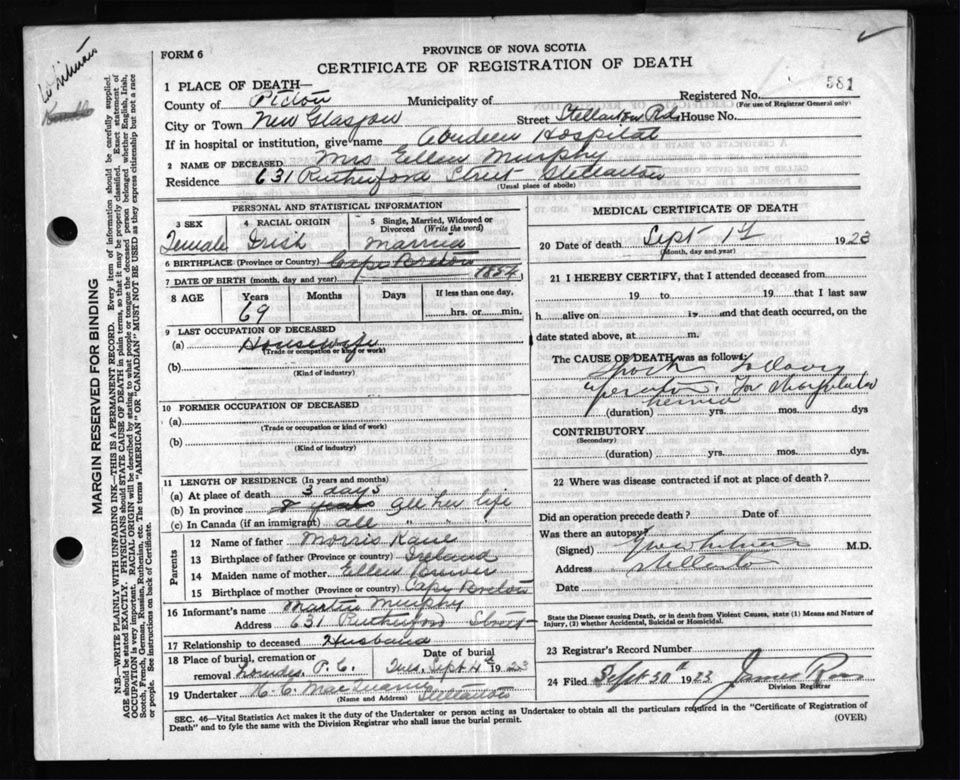 FORM 6
PROVINCE OF NOVA SCOTIA
CERTIFICATE OF REGISTRATION OF DEATH
1 PLACE OF DEATH—
Registered No. 581
(For use of Registrar General only)
County of Pictou Municipality of
City or Town New Glasgow Street Stellarton Rd. House No.
If in hospital or institution, give name Aberdeen Hospital
2 NAME OF DECEASED Mrs Ellen Murphy
Residence 631 Rutherford Street Stellarton
(Usual place of abode)
PERSONAL AND STATISTICAL INFORMATION
3 SEX Female
4 RACIAL ORIGIN Irish
5 Single, Married, Widowed or Divorced (Write the word) Married
6 BIRTHPLACE (Province or Country) Cape Breton
7 DATE OF BIRTH (month, day and year) 1854
8 AGE Years Months Days If less than one day,
69 hrs. or min.
9 LAST OCCUPATION OF DECEASED
(a) Housewife
(Trade or occupation or kind of work)
(b)
(Kind of industry)
10 FORMER OCCUPATION OF DECEASED
(a)
(Trade or occupation or kind of work)
(b)
(Kind of industry)
11 LENGTH OF RESIDENCE (In years and months)
(a) At place of death 3 days
(b) In province 8 years all her life
(c) In Canada (if an immigrant) all " "
Parents
12 Name of father Morris Kane
13 Birthplace of father (Province or country) Ireland
14 Maiden name of mother Ellen
15 Birthplace of mother (Province or Country) Cape Breton
16 Informant's name Martin Murphy
Address 631 Rutherford Street
17 Relationship to deceased Husband
18 Place of burial, cremation or removal Lourdes P. C. Date of burial Tues. Sept 4th 1923
19 Undertaker Stellarton
(Name and Address)
MEDICAL CERTIFICATE OF DEATH
20 Date of death Sept 1st 1923
(Month, day and year)
21 I HEREBY CERTIFY, that I attended deceased from
19 to 19 that I last saw
h alive on 19 and that death occurred, on
date stated above, at m.
The CAUSE OF DEATH was as follows:
Shock following
operation for strangulated
hernia
(duration) yrs. mos. dys
CONTRIBUTORY
(Secondary)
(duration) yrs. mos. dys.
22 Where was disease contracted if not at place of death?
Did an operation precede death? Date of
Was there an autopsy?
(Signed) M.D.
Address Stellarton
Date
State the Disease causing Death, or in death from Violent Causes, state (1) Means and Nature of
Injury, (2) whether Accidental, Suicidal or Homicidal.
23 Registrar's Record Number
24 Filed Sept 30th 1923 James Ross
Division Registrar
SEC. 46—Vital Statistics Act makes it the duty of the Undertaker or person acting as Undertaker to obtain all the particulars required in the "Certificate of Registration of
Death" and to fyle the same with the Division Registrar who shall issue the burial permit.
(OVER)
MARGIN RESERVED FOR BINDING
N.B.—WRITE PLAINLY WITH UNFADING INK—THIS IS A PERMANENT RECORD. Every item of information should be carefully supplied.
AGE should be stated EXACTLY. PHYSICIANS should STATE CAUSE OF DEATH in plain terms, so that it may be properly classified. Exact statement of
OCCUPATION is very important. RACIAL ORIGIN will be described by stating to what people or tongue the deceased person belonged whether English, Irish,
Scotch, French, German, Russian, Ruthenian, etc. The terms "AMERICAN" OR "CANADIAN" MUST NOT BE USED as they express citizenship but not a race
or people. See instructions on back of Certificate.